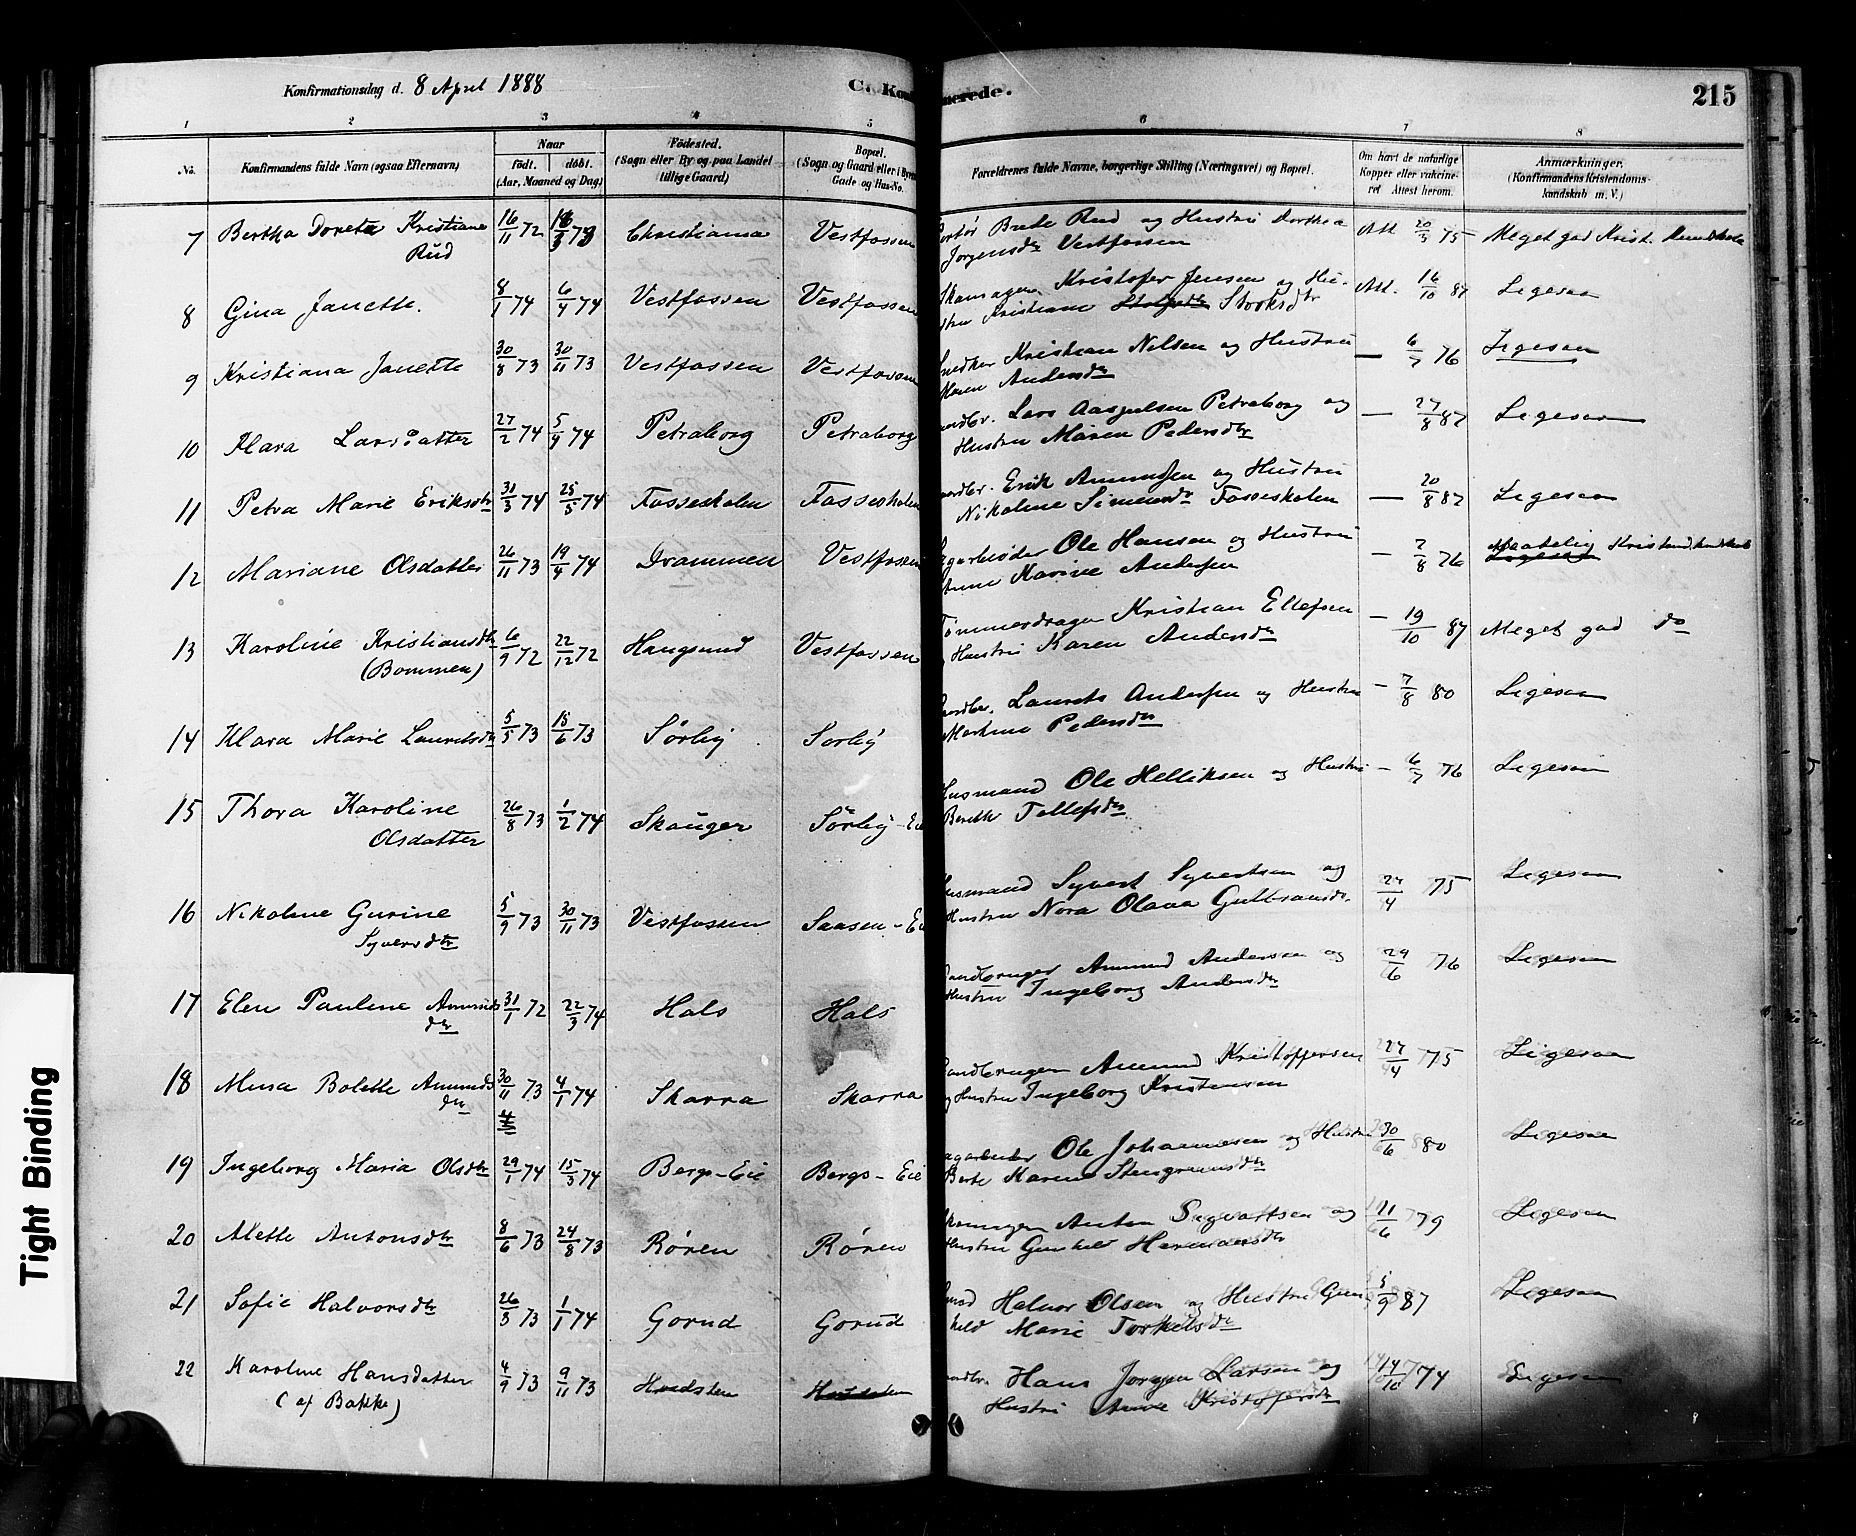 Konfirmationsdag d. 8 April 1888
C. Kon
merede.
215
1 2 3 4 5 6 7 8
No.
Konfirmandens fulde Navn (ogsaa Efternavn)
Naar
födt. döbt.
(Aar, Maaned og Dag)
Födested.
(Sogn eller By og paa Landet
tillige Gaard)
Bopæl.
(Sogn og Gaard eller i Byen
Gade og Hus-No.
Forældrenes fulde Navne, borgerlige Stilling (Næringsvei) og Bopæl.
Om havt de naturlige
Kopper eller vakcine-
ret Attest herom.
Anmærkninger.
(Konfirmandens Kristendoms-
kundskab m. V.)
7 Bertha Doretea Kristiane 16/11 72 16/3 73 Christiania Vestfossen Brede Rud og Hustru Dorthea Att 20/3 75 Meget god Krist. Kundskab
Rud Jørgensdr Vestfossen
8 Gina Janette. 8/1 74 6/4 74 Vestfossen Vestfossen Skomager Kristofer Jensen og Hu- Att. 16/10 87 Ligesaa
stru Kristiane
9 Kristiana Janette 30/8 73 30/11 73 Vestfossen Vestfossen Snedker Kristian Nilsen og Hustru — 6/7 76 Ligesaa
Maren Andersdr
10 Klara Larsdatter 27/2 74 5/4 74 Petraborg Petraborg Lars Petraborg og — 27/8 87 Ligesaa
Hustru Maren Pedersdtr
11 Petra Marie Eriksdtr 31/3 74 25/5 74 Fosseskolen Fosseskolen Erik Amundsen og Hustru — 20/8 87 Ligesaa
Nikoline Fosseskolen
12 Mariane Olsdatter 26/11 73 19/4 74 Drammen Vestfossen Ole Hansen og Hustru — 7/8 76 Maadelig
Anne Karine Andersen
13 Karoline Kristiansdtr 6/9 72 22/12 72 Haugsund Vestfossen Tømmerdrager Kristian Ellefsen — 19/10 87 Meget god do
(Bommen) Hustru Karen Andersdr
14 Klara Marie Lauritsdr 5/5 73 15/6 73 Sørlig Sørlig Laurits Andersen og Hustru — 7/8 80 Ligesaa
Pedersdtr
15 Thora Karoline 26/8 73 1/2 74 Skauger Sørlig-Eie Husmand Ole Helliksen og Hustru — 6/7 76 Ligesaa
Olsdatter Tollefsdr
16 Nikoline Gurine 5/9 73 30/11 73 Vestfossen Saasen-Ei Husmand Syvert Syvertsen og 24/4 75 Ligesaa
Syversdtr Hustru Nora Olava Gulbransdr.
17 Elen Pauline Amunds 31/1 72 22/3 74 Hals Hals Landbruger Amund Andersen og 29/6 76 Ligesaa
dtr Hustru Ingeborg Andersdr
18 Bolette Amunds 30/11 73 4/1 74 Skarra Skarra Landbruger Amund Kristoffersen 27/4 75 Ligesaa
dtr og Hustru Ingeborg Kristensen
19 Ingeborg Maria Olsdtr 29/1 74 15/3 74 Bergs-Eie Bergs-Eie Ole Johannesen og Hustru 30/6 80 Ligesaa
Berte Karine
20 Alette Antonsdtr 8/6 73 24/8 73 Røren Røren Anton og 11/6 79 Ligesaa
Hustru Gunhild Hermansdtr
21 Sofie Halvorsdtr 26/5 73 1/1 74 Gorud Gorud Halvor Olsen og Hustru Gun 5/9 87 Ligesaa
hild Marie Torkelsdr
22 Karoline Hansdatter 4/9 73 9/11 73 Hans Jørgen Larsen og 14/10 74 Ligesaa
(af Bakke) Hustru Anne Kristoffersdtr
Tight Binding